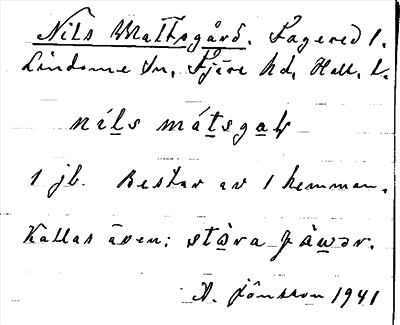 Nils Mattsgård. Fagered 1.
Lindome sn, Fjäre hd, Hall. l.
níls mátsgaḷ
1 jb. Består av 1 hemman.
Kallas även: stòra gàwər.
A. Jönsson 1941